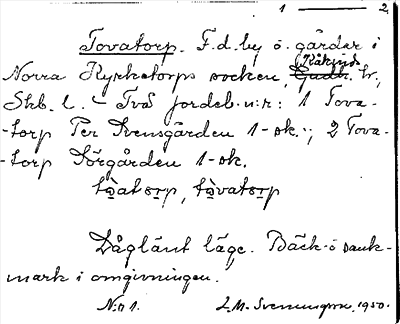 1 — 2.
Tovatorp. F.d. by o. gårdar i
Norra Kyrketorps socken, Kåkinds
Gudh. hr,
Skb. l. – Två jordeb.n:r: 1 Tova-
-torp Per Svensgården 1-sk.; 2 Tova-
-torp Sörgården 1-sk.
Låglänt läge. Bäck o sank-
mark i omgivningen.
N:o 1. L.M. Svenungsson, 1950.